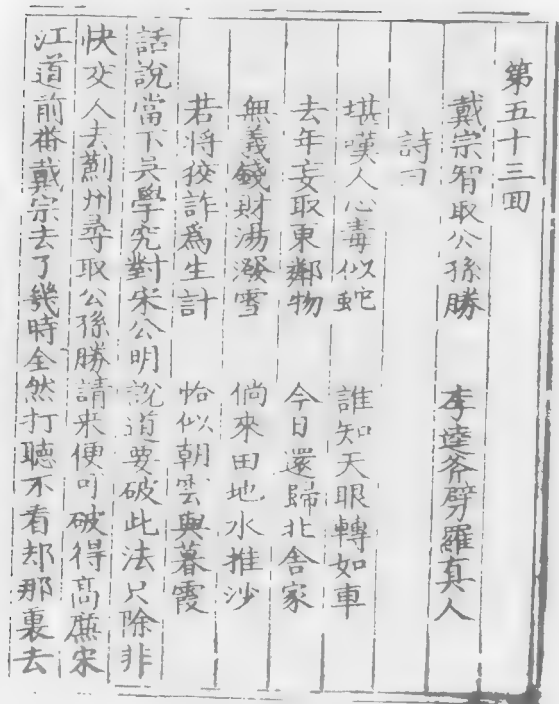 第五十三回
戴宗智取公孫勝　李逵斧劈羅真人
詩曰
堪嘆人心毒似蛇　誰知天眼轉如車
去年妄取東鄰物　今日還歸北舍家
無義錢財湯潑雪　倘來田地水推沙
若將狡詐爲生計　恰似朝雲與暮霞
話說當下吳學究對宋公明說道要破此法只除非
快交人去薊州尋取公孫勝請来便可破得高廉宋
江道前番戴宗去了幾時全然打聽不着却那裏去